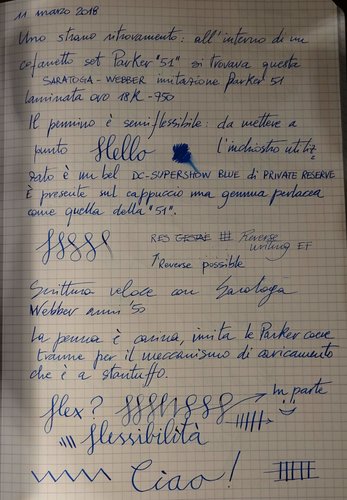 11 marzo 2018
Uno strano ritrovamento: all'interno di un
cofanetto set Parker "51" si trovava questa
SARATOGA-WEBBER imitazione Parker 51
laminata oro 18K - 750
Il pennino è semiflessibile: da mettere a
punto Hello l'inchiostro utiliz
zato è un bel DC-SUPERSHOW BLUE di PRIVATE RESERVE
È presente sul cappuccio una gemma perlacea
come quella della "51".
Reverse
writing EF
↑ Reverse possible
Scrittura veloce con Saratoga
Webber anni '50
La penna è carina, imita le Parker come
tranne per il meccanismo di caricamento
che è a stantuffo.
flex? In parte
flessibilità
Ciao!